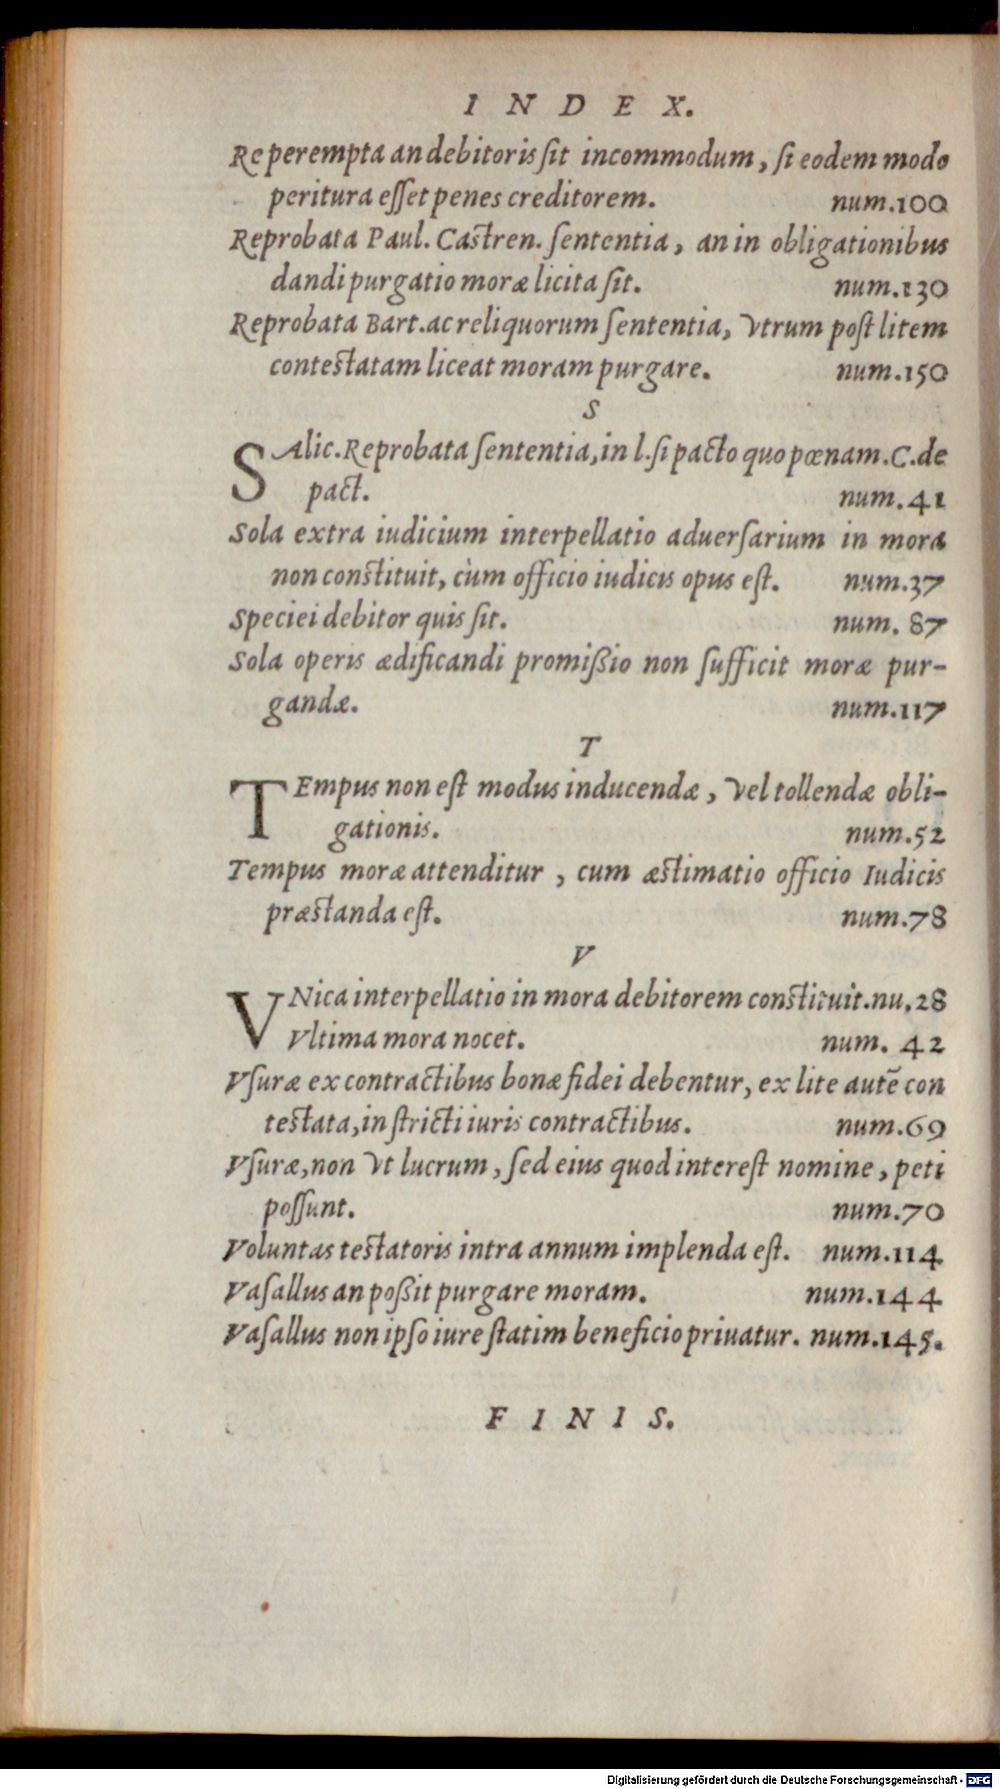 INDEX.
Re perempta an debitoris ſit incommodum, ſi eodem modo
peritura eſſet penes creditorem. num.100
Reprobata Paul. Caſtren. ſententia, an in obligationibus
dandi purgatio moræ licita ſit. num.130
Reprobata Bart. ac reliquorum ſententia, vtrum poſt litem
conteſtatam liceat moram purgare. num.150
S
SAlic. Reprobata ſententia, in l. ſi pacto quo pœnam. C. de
pact. num.41
Sola extra iudicium interpellatio aduerſarium in mora
non conſtituit, cùm officio iudicis opus eſt. num.37
Speciei debitor quis ſit. num. 87
Sola operis ædificandi promißio non ſufficit moræ pur-
gandæ. num.117
T
TEmpus non eſt modus inducendæ, vel tollendæ obli-
gationis. num.52
Tempus moræ attenditur, cum æſtimatio officio Iudicis
præſtanda eſt. num.78
V
VNica interpellatio in mora debitorem conſtituit. nu.28
Vltima mora nocet. num. 42
Vſuræ ex contractibus bonæ fidei debentur, ex lite autē con
teſtata, in ſtricti iuris contractibus. num.69
Vſuræ, non vt lucrum, ſed eius quod intereſt nomine, peti
poſſunt. num.70
Voluntas teſtatoris intra annum implenda eſt. num.114
Vaſallus an poßit purgare moram. num.144
Vaſallus non ipſo iure ſtatim beneficio priuatur. num.145.
FINIS.
Digitalisierung gefördert durch die Deutsche Forschungsgemeinschaft - DFG